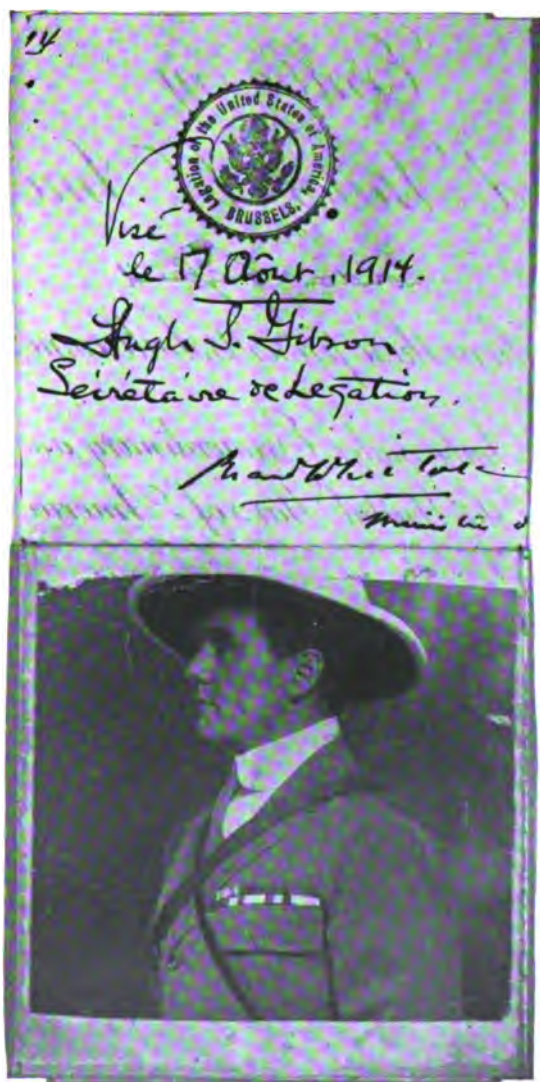 14
Legation of the United States of America,
BRUSSELS.
Visé
le 17 Aôut, 1914.
Hugh S. Gibson
Sécrétaire de Legation.
Brand Whitlock